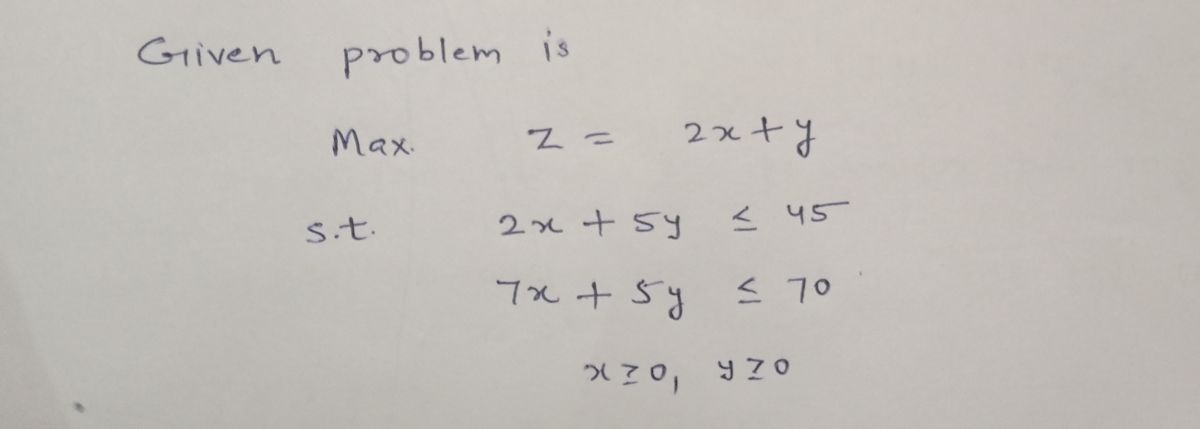 Given problem is
Max. Z = 2x + y
s.t. 2x + 5y ≤ 45
7x + 5y ≤ 70
x ≥ 0, y ≥ 0